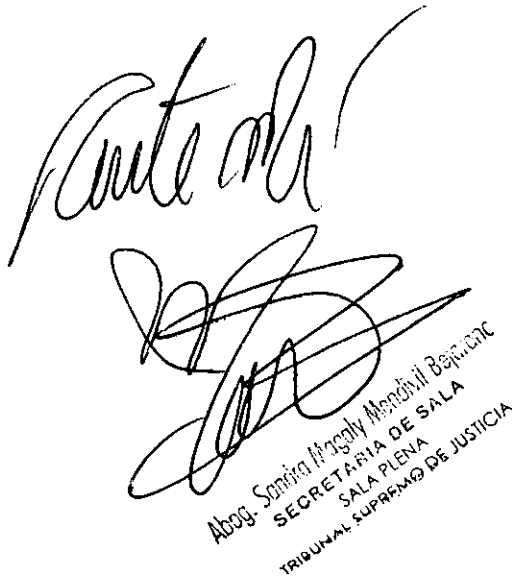 Ante mí
Abog. Sandra Magaly Mendivil Bejarano
SECRETARIA DE SALA
SALA PLENA
TRIBUNAL SUPREMO DE JUSTICIA